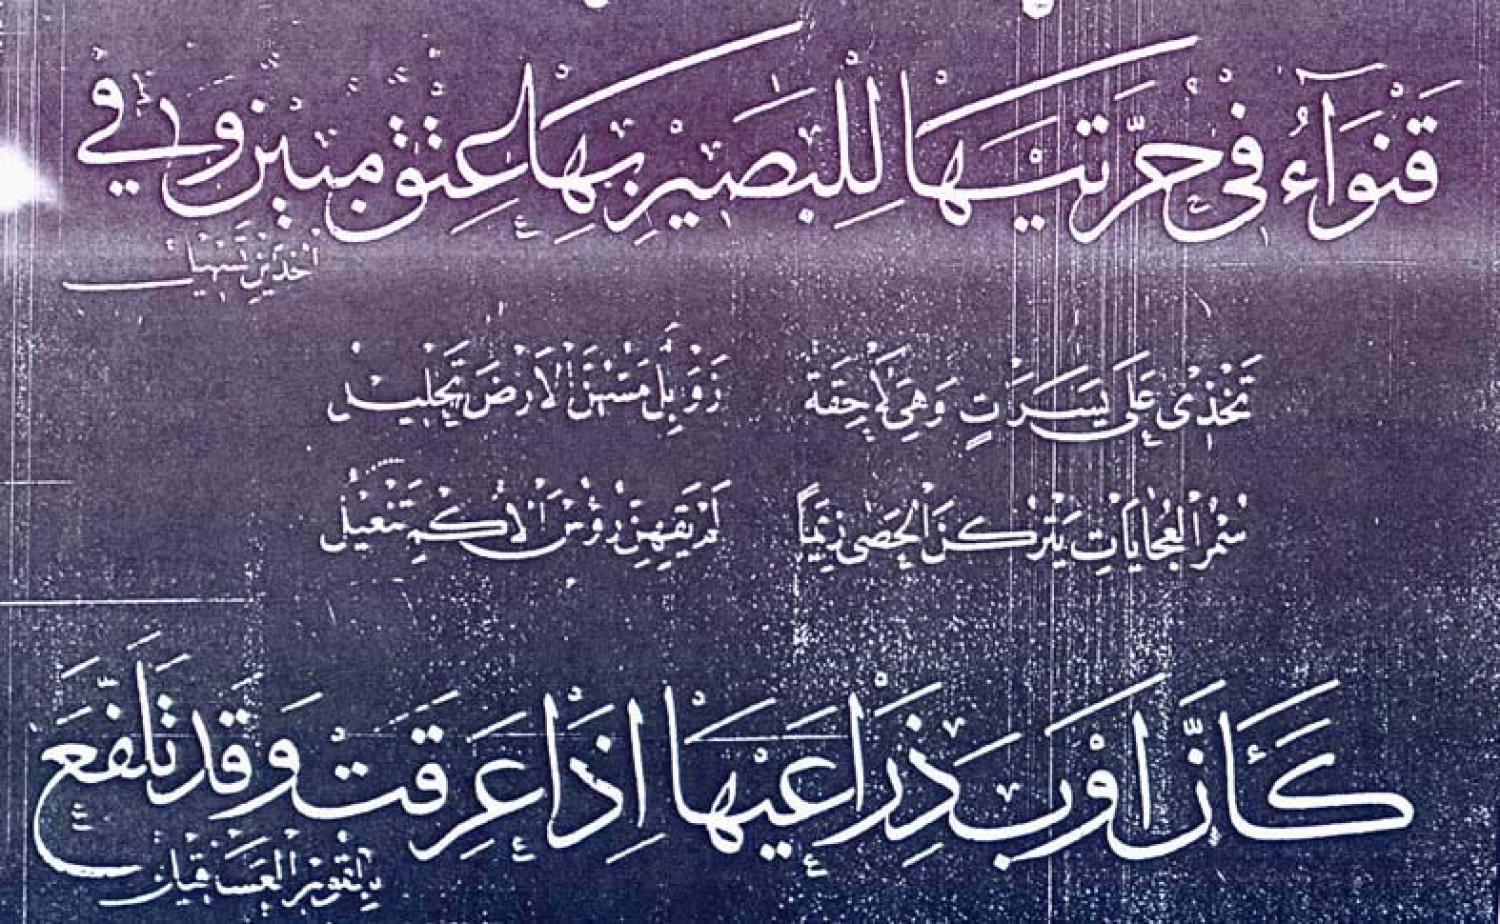 قَنْوَآءُ فِى حُرَّتَيْهَا لِلْبَصِيْرِ بِهَا عِتْقٌ مُبِيْنٌ وَفِي
الْخَدَّيْنِ تَسْهِيْلُ
تَخْذِى عَلَى يَسَرَتٍ وَهِيَ لَاحِقَةٌ ذَوَبِلٌ مَسُّهُنَّ الْاَرْضَ تَحْلِيْلُ
سُمْرُ الْعُجَايَاتِ يَتْرُكْنَ الْحَصٰى زِيَمًا لَمْ يَقِهِنَّ رُؤُسَ الْاُكْمِ تَنْعِيْلُ
كَأَنَّ اَوْبَ ذِرَاعَيْهَا اِذَا عَرِقَتْ وَقَدْ تَلَفَّعَ
بِالْقُوْرِ الْعَسَاقِيْلُ